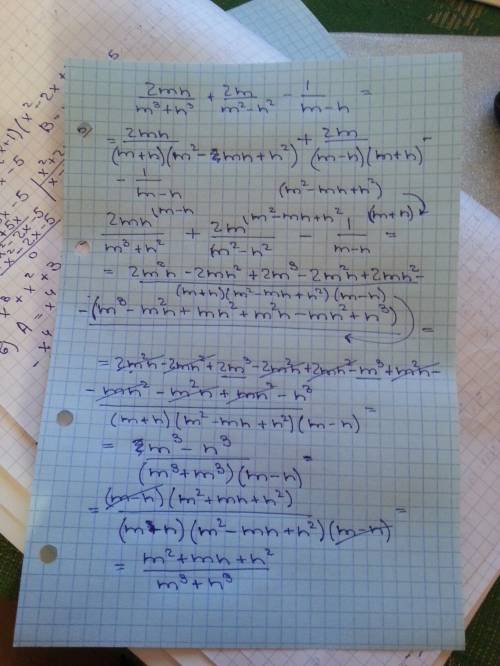 2mn/(m³+n³) + 2m/(m²-n²) - 1/(m-n) =
= 2mn/((m+n)(m²-mn+n²)) + 2m/((m-n)(m+n)) -
- 1/(m-n) (m²-mn+n²)
2mn^(m-n)/(m³+n²) + 2m^(m²-mn+n²)/(m²-n²) - 1/(m-n) (m+n) =
= (2m²n - 2mn² + 2m³ - 2m²n + 2mn² -
(m+n)(m²-mn+n²)(m-n)
-(m³-m²n+mn²+m²n-mn²+n³) =
= 2m²n - 2mn² + 2m³ - 2m²n + 2mn² - m³ + m²n -
- mn² - m²n + mn² - n³
(m+n)(m²-mn+n²)(m-n) =
= (m³-n³)/((m³+m³)(m-n)) =
= (m-n)(m²+mn+n²)/((m+n)(m²-mn+n²)(m-n)) =
= (m²+mn+n²)/(m³+n³)